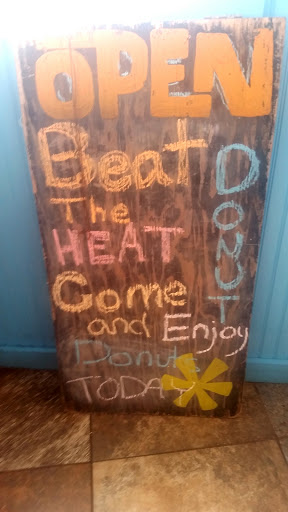 OPEN
Beat
The
HEAT
Come
and Enjoy
Donuts
TODAY
DONUT